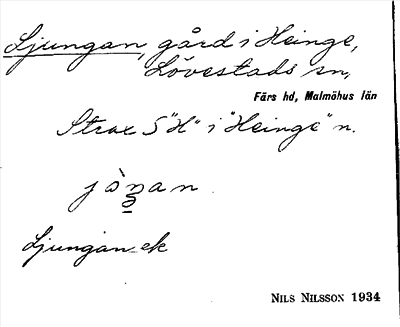 Ljungan, gård i Heinge,
Lövestads sn,
Färs hd, Malmöhus län
Strax S "H" i "Heinge" n.
Ljungan ek
NILS NILSSON 1934